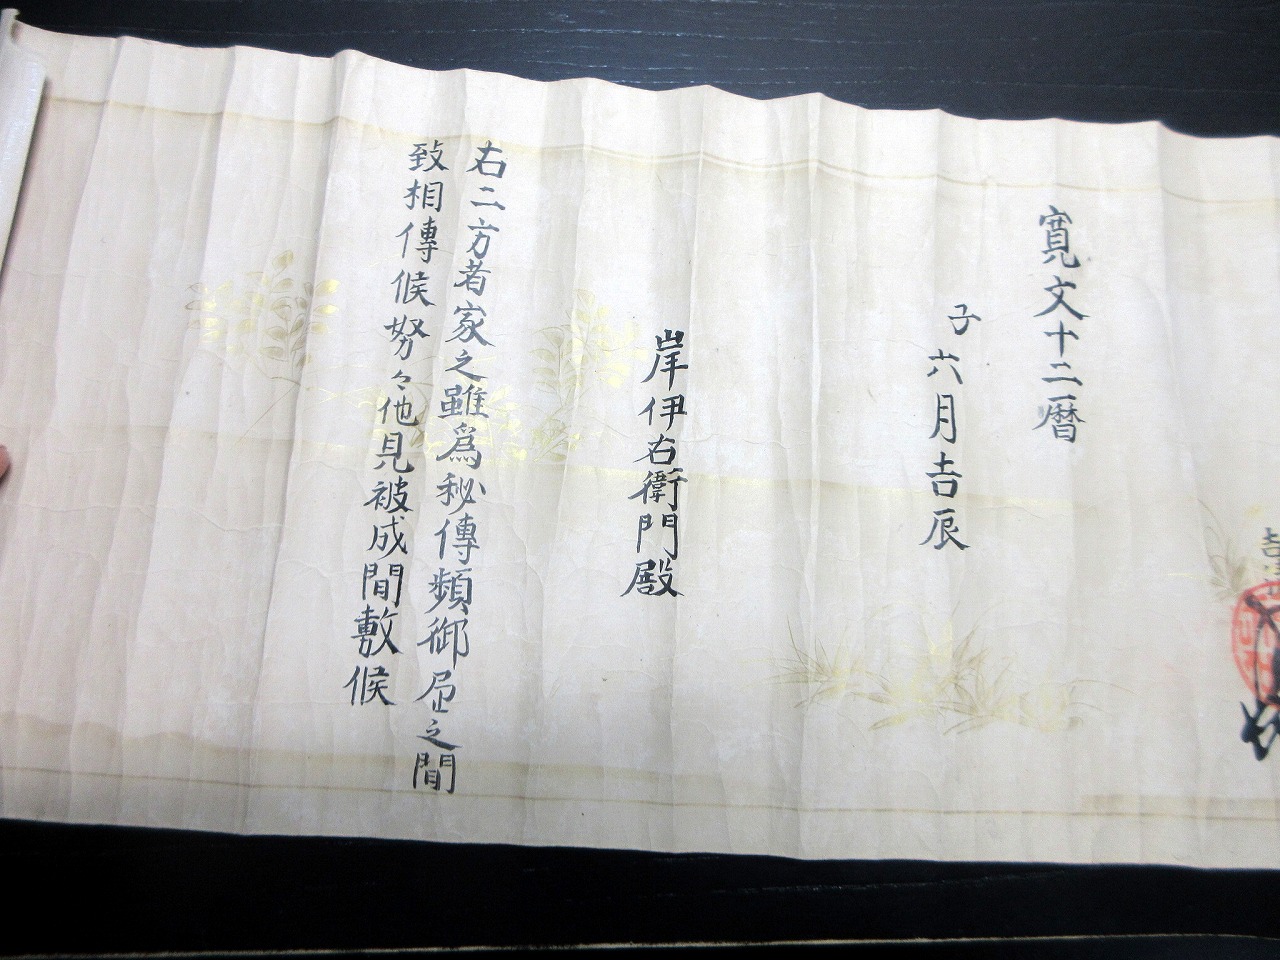 吉
寛文十二暦
子六月吉辰
岸伊右衛門殿
右二方者家之雖爲秘傳頻御㞐之間
致相傳候努々他見被成間敷候